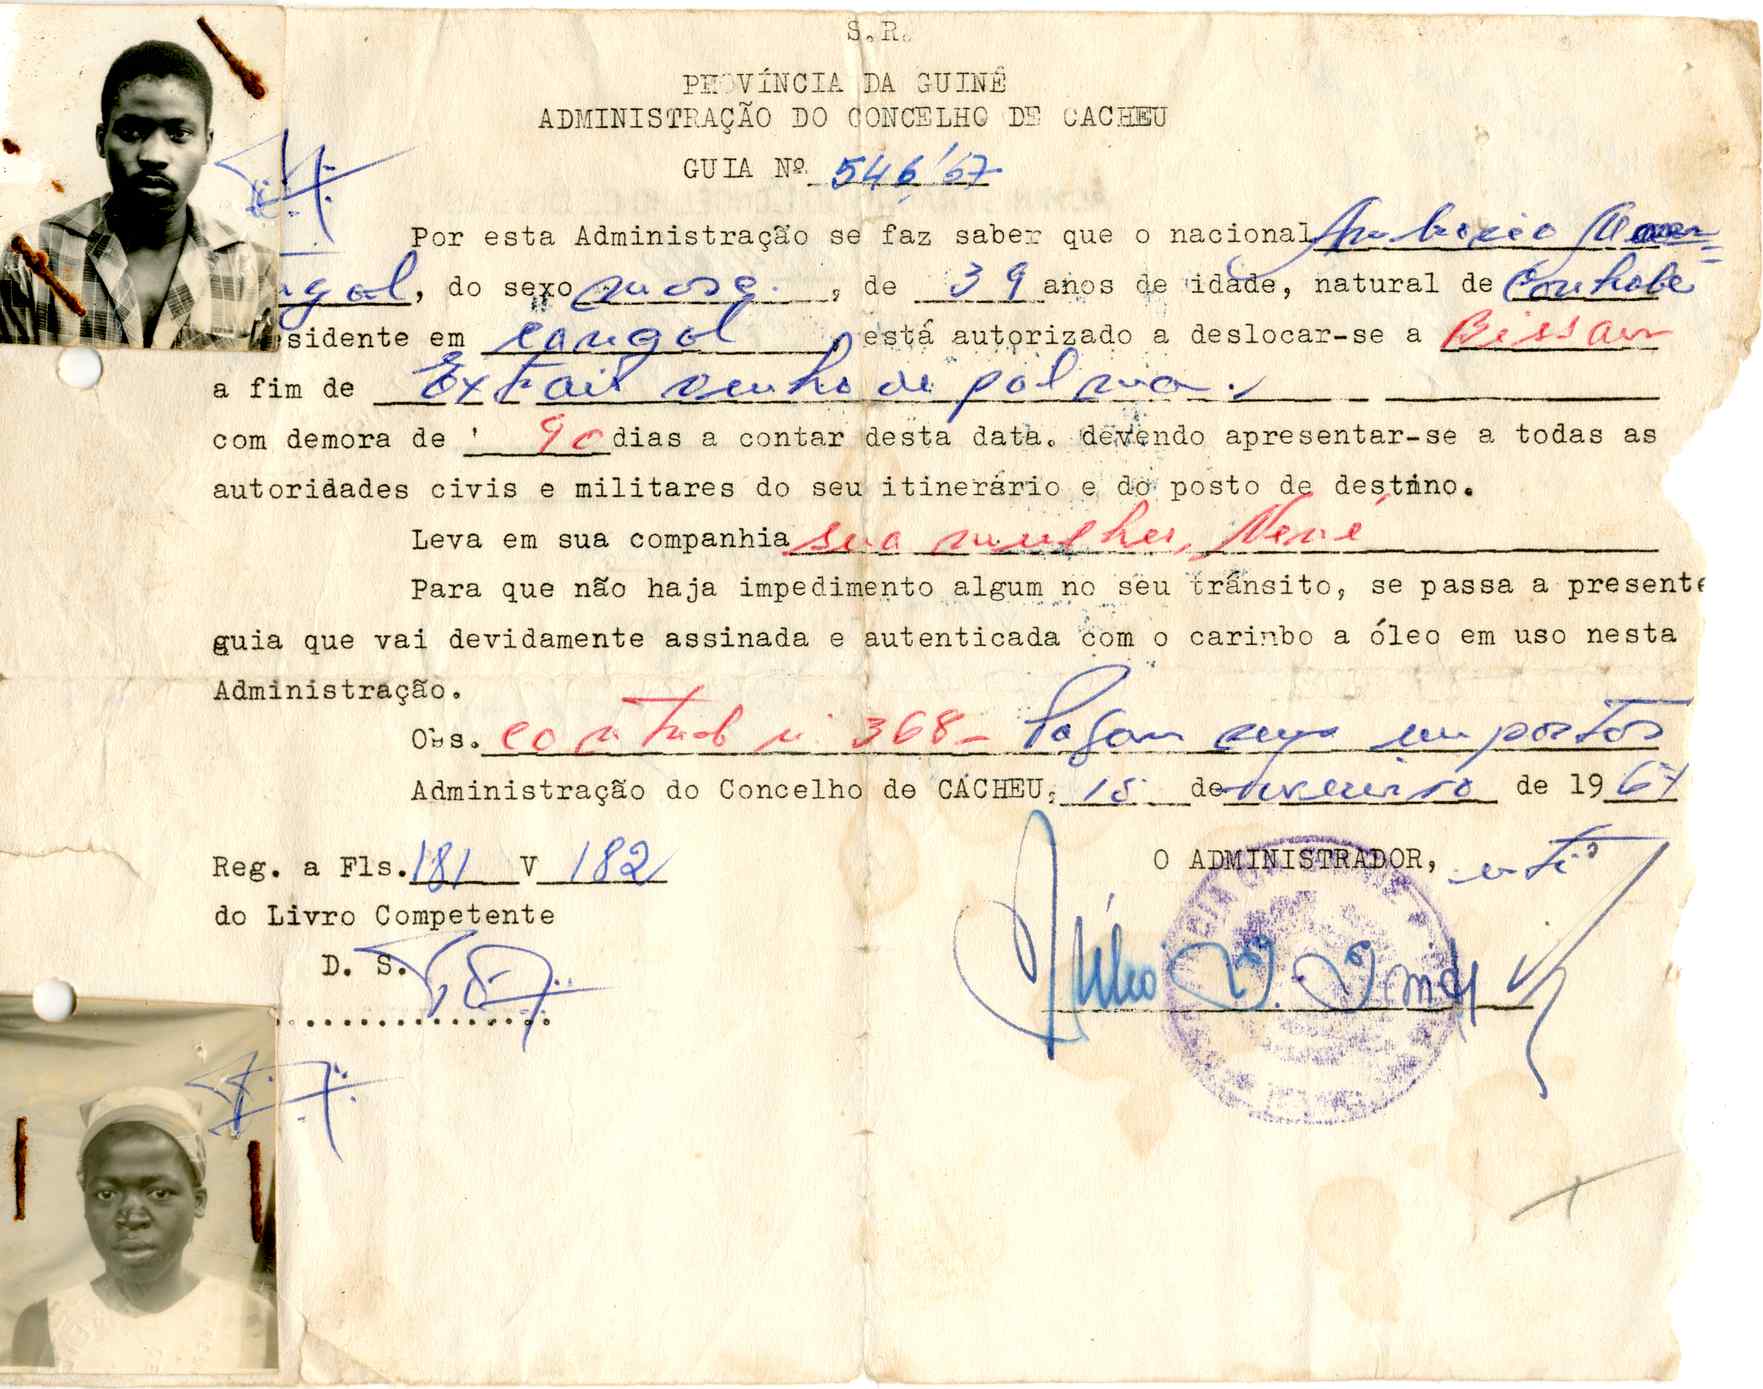 S. R.
PROVÍNCIA DA GUINÉ
ADMINISTRAÇÃO DO CONCELHO DE CACHEU
GUIA Nº 546/67
Por esta Administração se faz saber que o nacional Ambrósio
, do sexo masc. , de 39 anos de idade, natural de
sidente em Cangol , está autorizado a deslocar-se a Bissau
a fim de Extrair vinho de palma.
com demora de 90 dias a contar desta data. devendo apresentar-se a todas as
autoridades civis e militares do seu itinerário e do posto de destino.
Leva em sua companhia sua mulher, Nené
Para que não haja impedimento algum no seu trânsito, se passa a presente
guia que vai devidamente assinada e autenticada com o carimbo a óleo em uso nesta
Administração.
Obs. 368- impostos
Administração do Concelho de CACHEU, 15 de fevereiro de 1967
O ADMINISTRADOR,
Reg. a Fls. 181 V 182
do Livro Competente
D. S.
Júlio